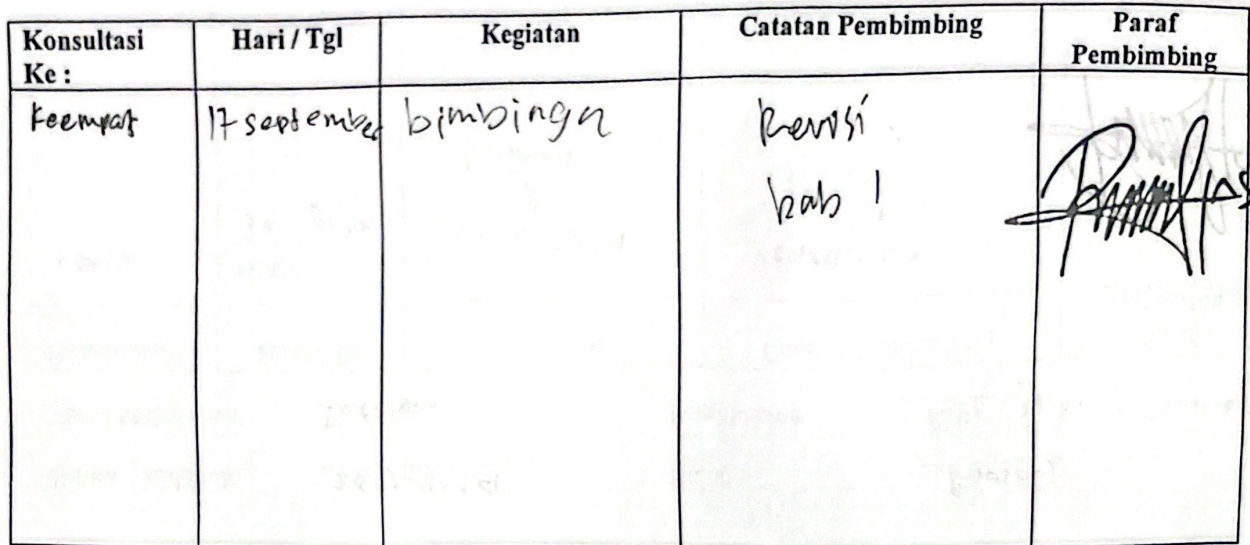 Konsultasi Ke :
Hari / Tgl
Kegiatan
Catatan Pembimbing
Paraf Pembimbing
Keempat
17 september
bimbingn
Revisi
bab 1